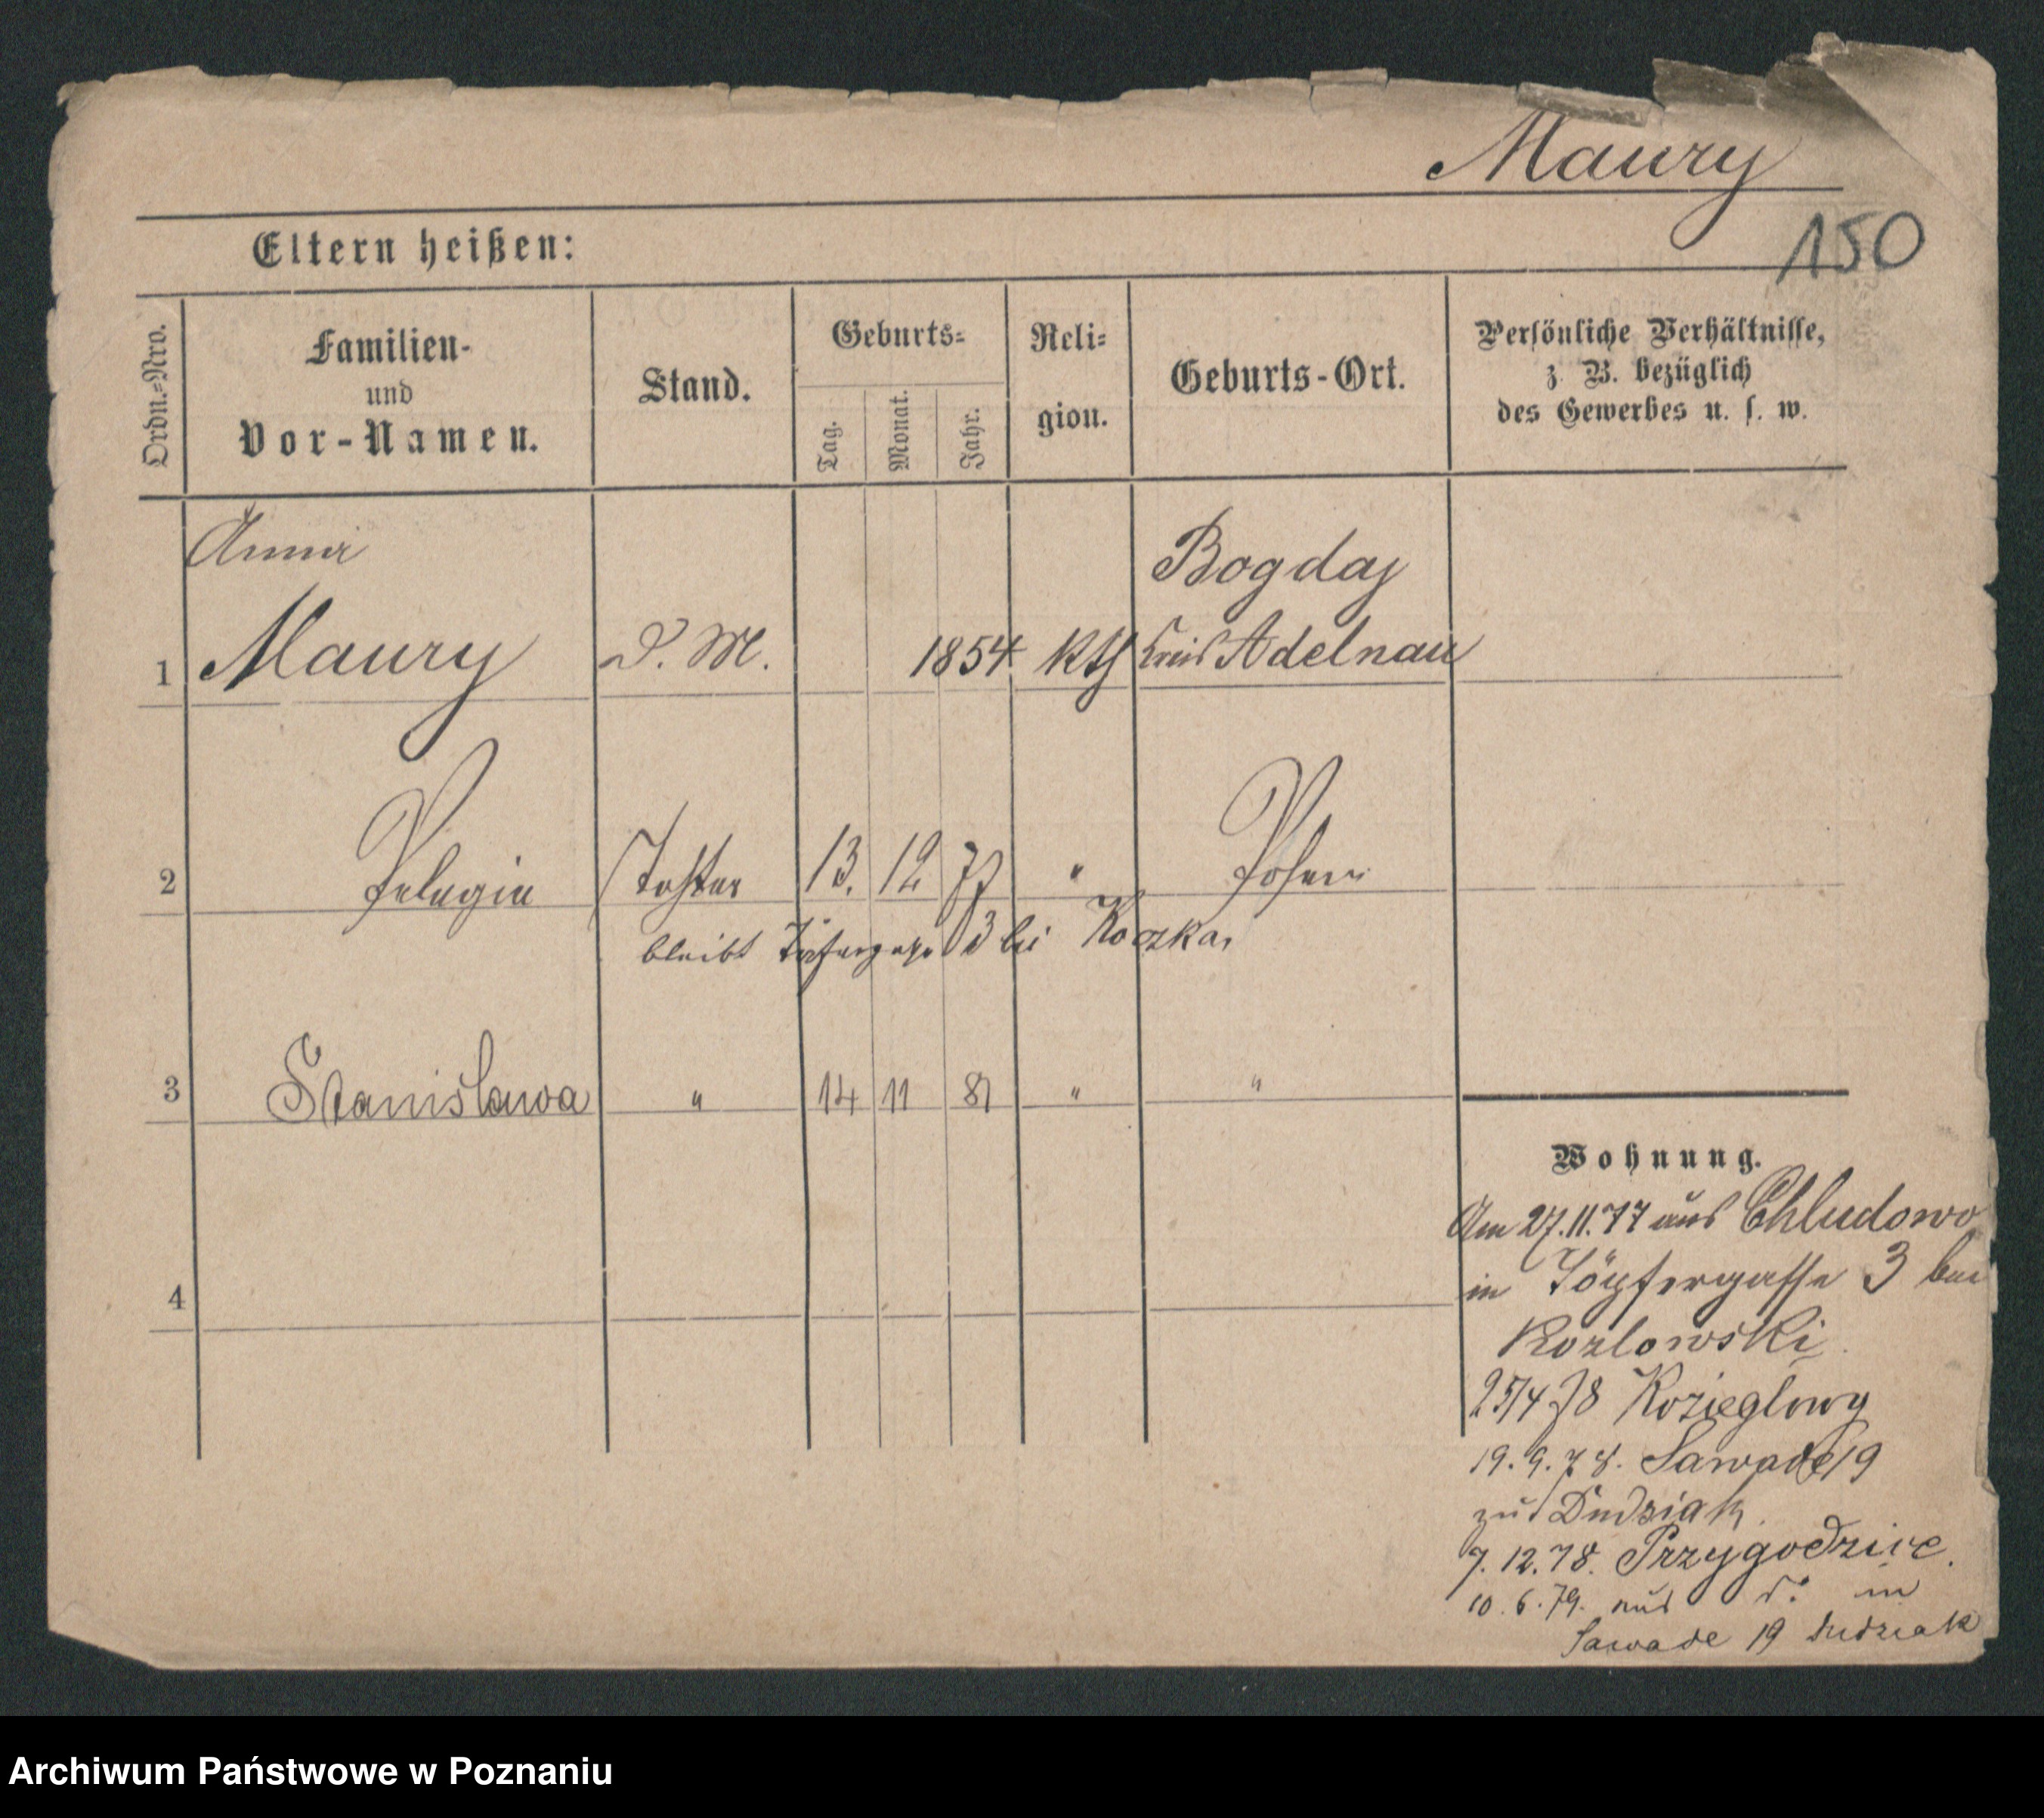 Maury
150
Eltern heißen:
Ordn.-Nro.
Familien-
und
Vor-Namen.
Stand.
Geburts-
Tag.
Monat.
Jahr.
Reli-
gion.
Geburts-Ort.
Persönliche Verhältnisse,
z. B. bezüglich
des Gewerbes u. s. w.
Anna
Bogdaj
1 Maury D. M. 1854 kth Kreis Adelnau
2 Pelagia Tochter 13. 12 77 " Posen
bleibt Töpfergasse 3 bei
3 Stanislawa " 14 11 81 " "
Wohnung.
Am 27.11.77 aus Chludowo
in Töpfergasse 3 bei
Kozlowski.
4
25/4 78 Kozieglowy
19.9.78. Sawade 19
zu Dudziak.
7.12.78. Przygodzice.
10.6.79. aus d. in
Sawade 19 Dudziak
Archiwum Państwowe w Poznaniu